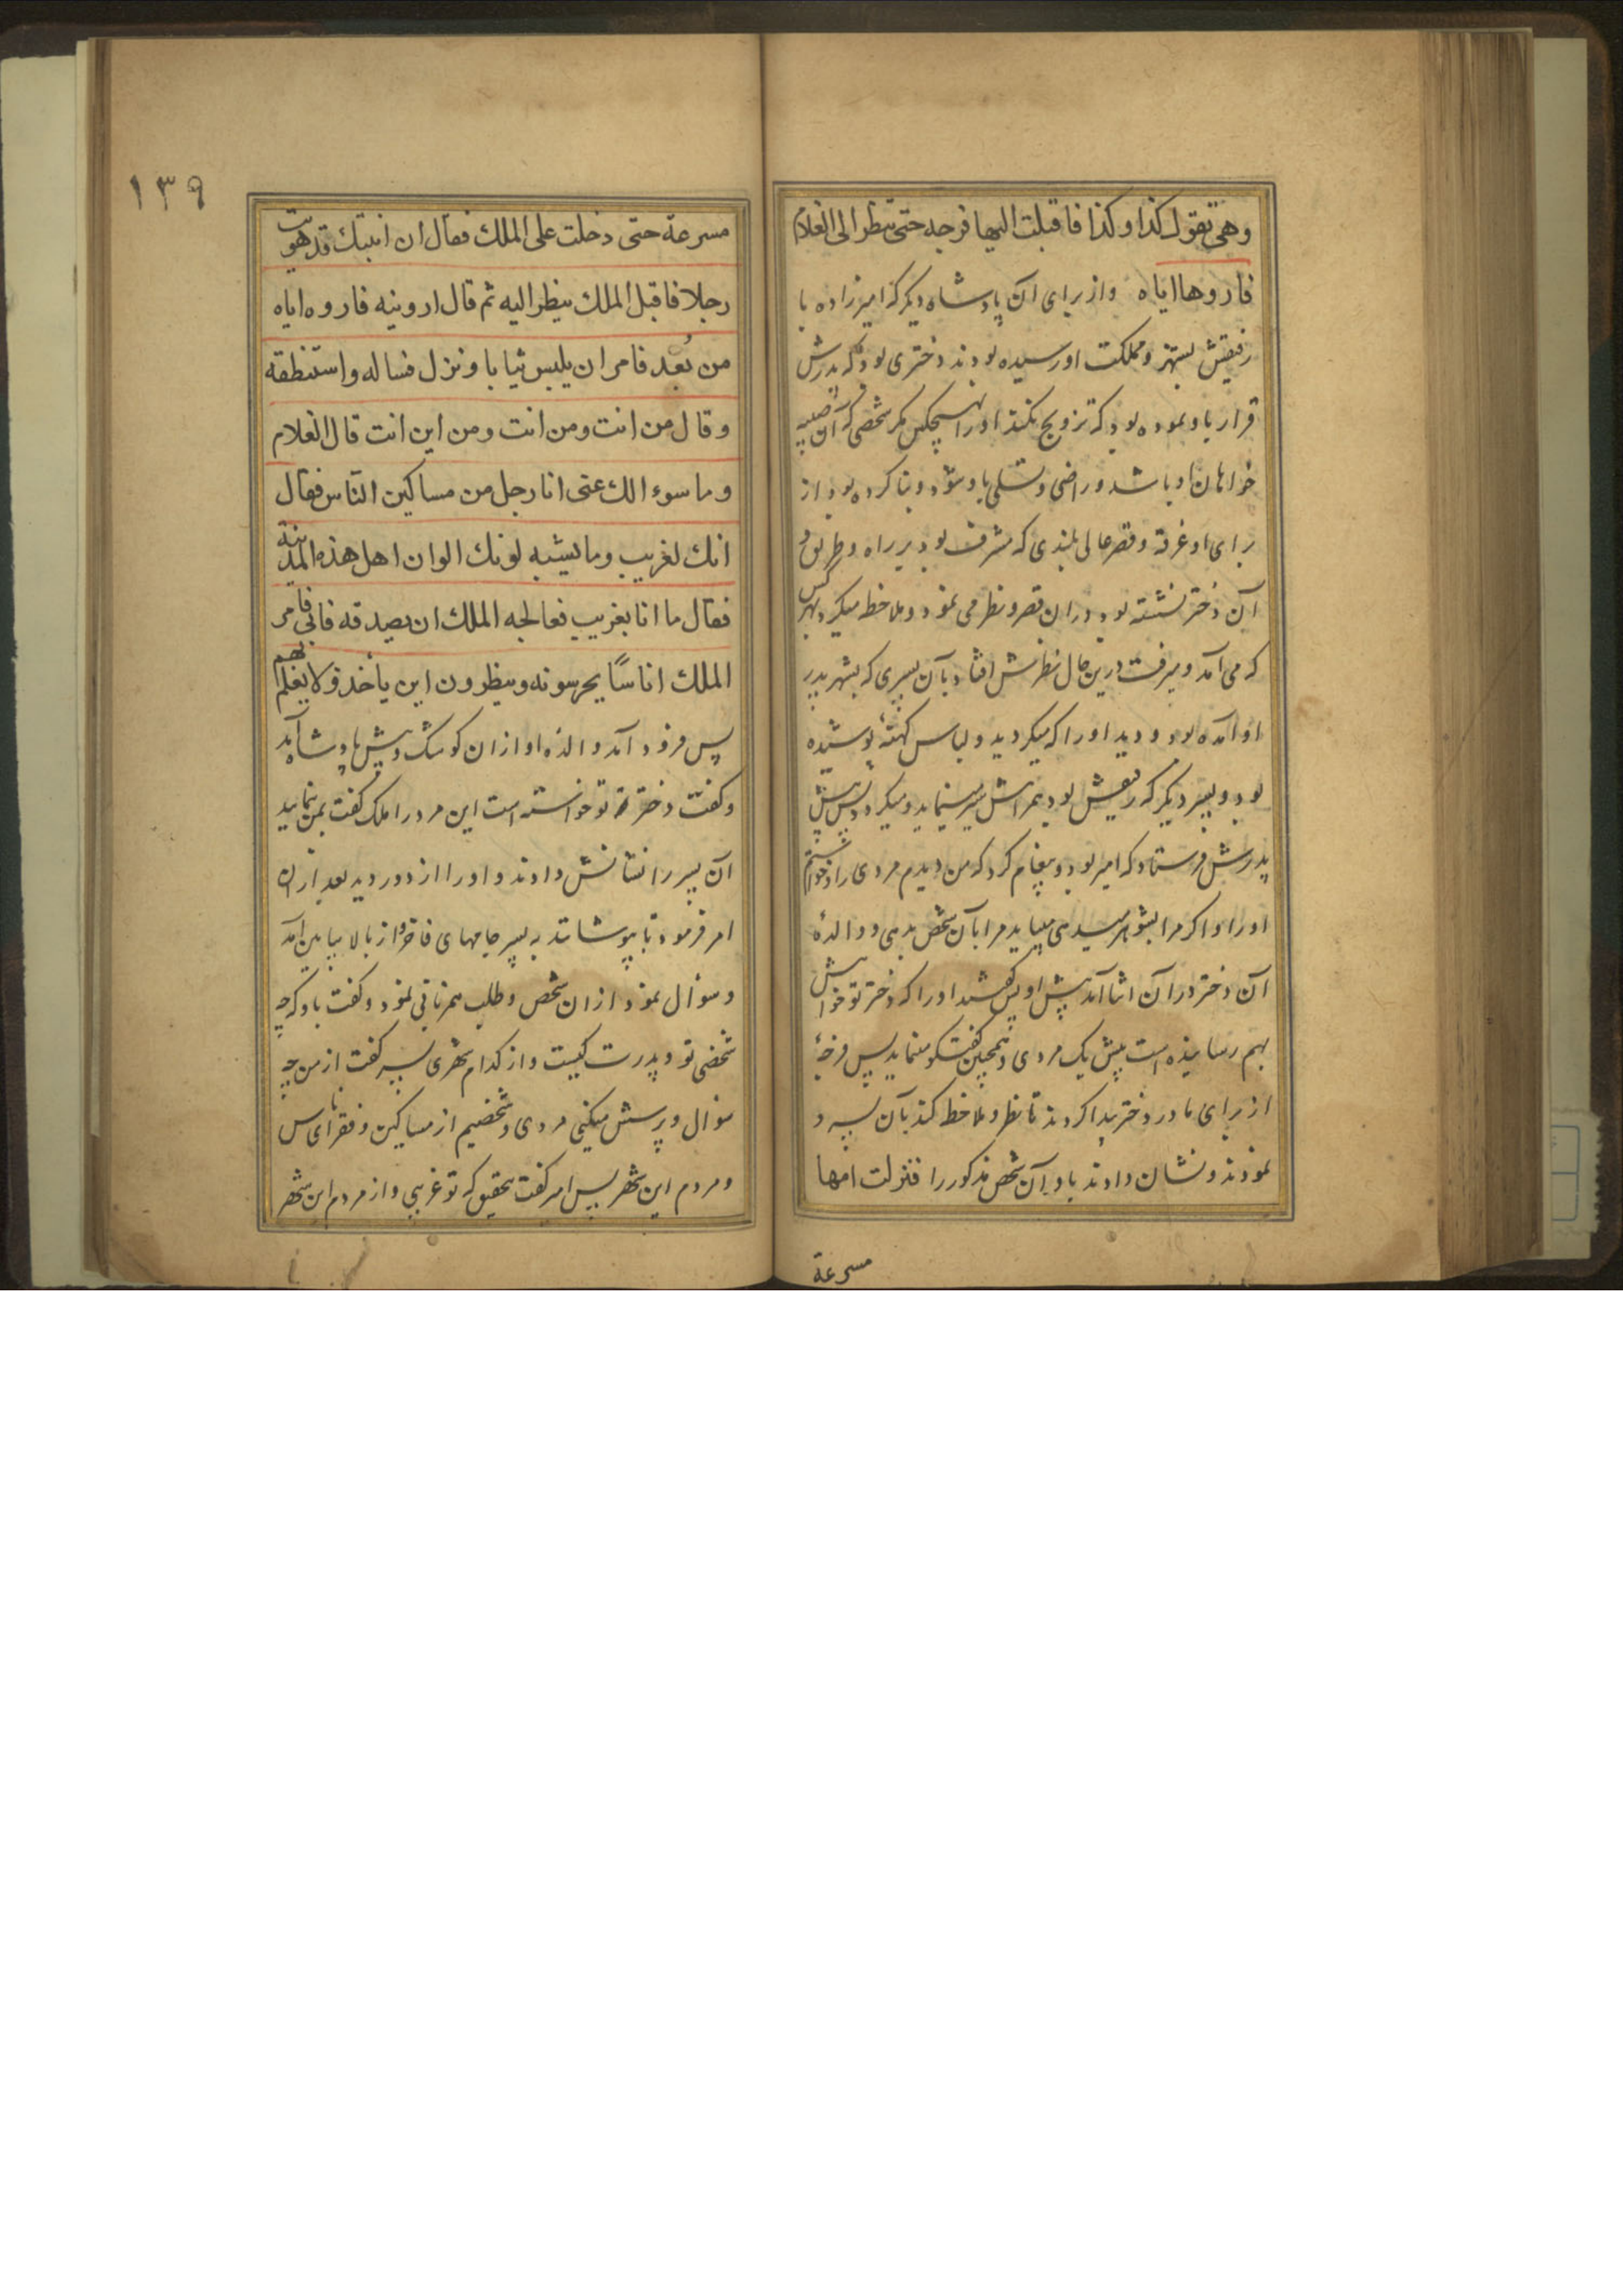 وهی تقول کذا وکذا فاقبلت الیها فرجه حتی تنظر الی الغلام
فاروها ایاه واز برای آن پادشاه دیگر که امیرزاده با
رفیقش بشهر و مملکت او رسیده بودند دختری بود که پدرش
قرار باو نموده بود که تزویج نکند او را بهیچکس مگر شخصی که آن صبیه
خواهان او باشد و راضی و تسلی باو شود و بنا کرده بود از
برای او غرفه و قصر عالی بلندی که مشرف بود بر راه و طریق و
آن دختر نشسته بود در ان قصر و نظر می نمود و ملاحظه میکرد بهر کس
که می آمد و میرفت درین حال نظرش افتاد بآن پسری که بشهر پدر
او آمده بود و دید او را که میگردید و لباس کهنهٔ پوشیده
بود و پسر دیگر که رفیقش بود بهمراهش سیر مینماید و میگردد پس پیش
پدرش فرستاد که امیر بود و پیغام کرد که من دیدم مردی را و خواستم
او را و اگر مرا بشوهر میدهی میباید مرا بآن شخص بدهی و والدهٔ
آن دختر در آن اثنا آمد پیش او پس گفتند او را که دختر تو خواهش
بهم رسانیده است پیش یک مردی و همچنین گفتگو مینماید پس فرجهٔ
از برای مادر دختر پیدا کردند تا نظر و ملاحظه کند بآن پسر و
نمودند و نشان دادند باو آن شخص مذکور را فنزلت امها
مسرعة
١٣٩
مسرعة حتی دخلت علی الملک فقال ان ابنتک قد هویت
رجلا فاقبل الملک ینظر الیه ثم قال ارونیه فاروه ایاه
من بُعد فامر ان یلبس ثیابا ونزل فساله واستنطقه
وقال من انت ومن انت ومن این انت قال الغلام
وما سوءالک عنی انا رجل من مساکین الناس فقال
انک لغریب وما یشبه لونک الوان اهل هذه المدینة
فقال ما انا بغریب فعالجه الملک ان یصدقه فابی فامر
الملک اناسًا یحرسونه وینظرون این یأخذ ولا یعلم بهم
پس فرود آمد والدهٔ او از ان کوشک و پیش پادشاه آمد
و گفت دختر تو خواسته است این مرد را ملک گفت بمن بنمایید
آن پسر را نشانش دادند و او را از دور دید بعد از ان
امر فرمود تا بپوشانند به پسر جامهای فاخر و از بالا بپایین آمد
و سوأل نمود از ان شخص و طلب همزبانی نمود و گفت باو که چه
شخصی تو و پدرت کیست و از کدام شهری پسر گفت از من چه
سوال و پرسش میکنی مردی و شخصیم از مساکین و فقرای ناس
و مردم این شهر پس امیر گفت بتحقیق که تو غریبی و از مردم این شهر